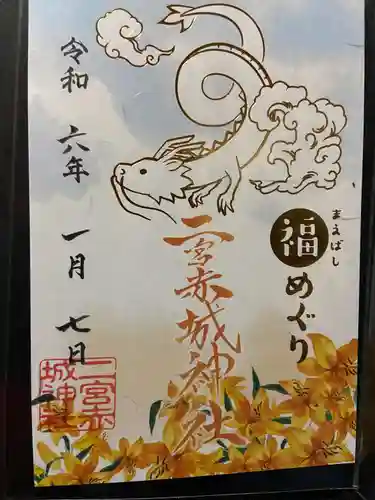 まえばし
福めぐり
二宮赤城神社
令和六年一月七日
二宮赤
城神社